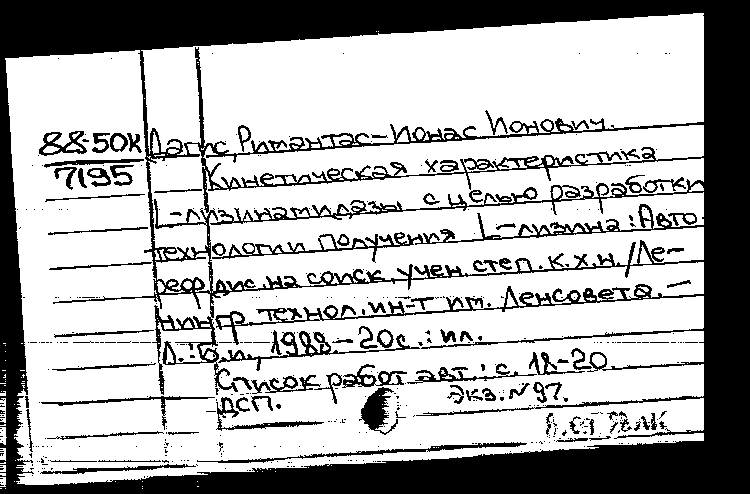 88-50К Дагис, Римантас-Ионас Ионович.
7195 Кинетическая характеристика
L-лизинамидазы с целью разработки
технологии получения L-лизина : Авто-
реф. дис. на соиск. учен. степ. к.х.н. / Ле-
нингр. технол. ин-т им. Ленсовета. —
Л. : Б.и., 1988. - 20с. : ил.
Список работ авт.: с. 18-20.
ДСП. Экз. № 97.